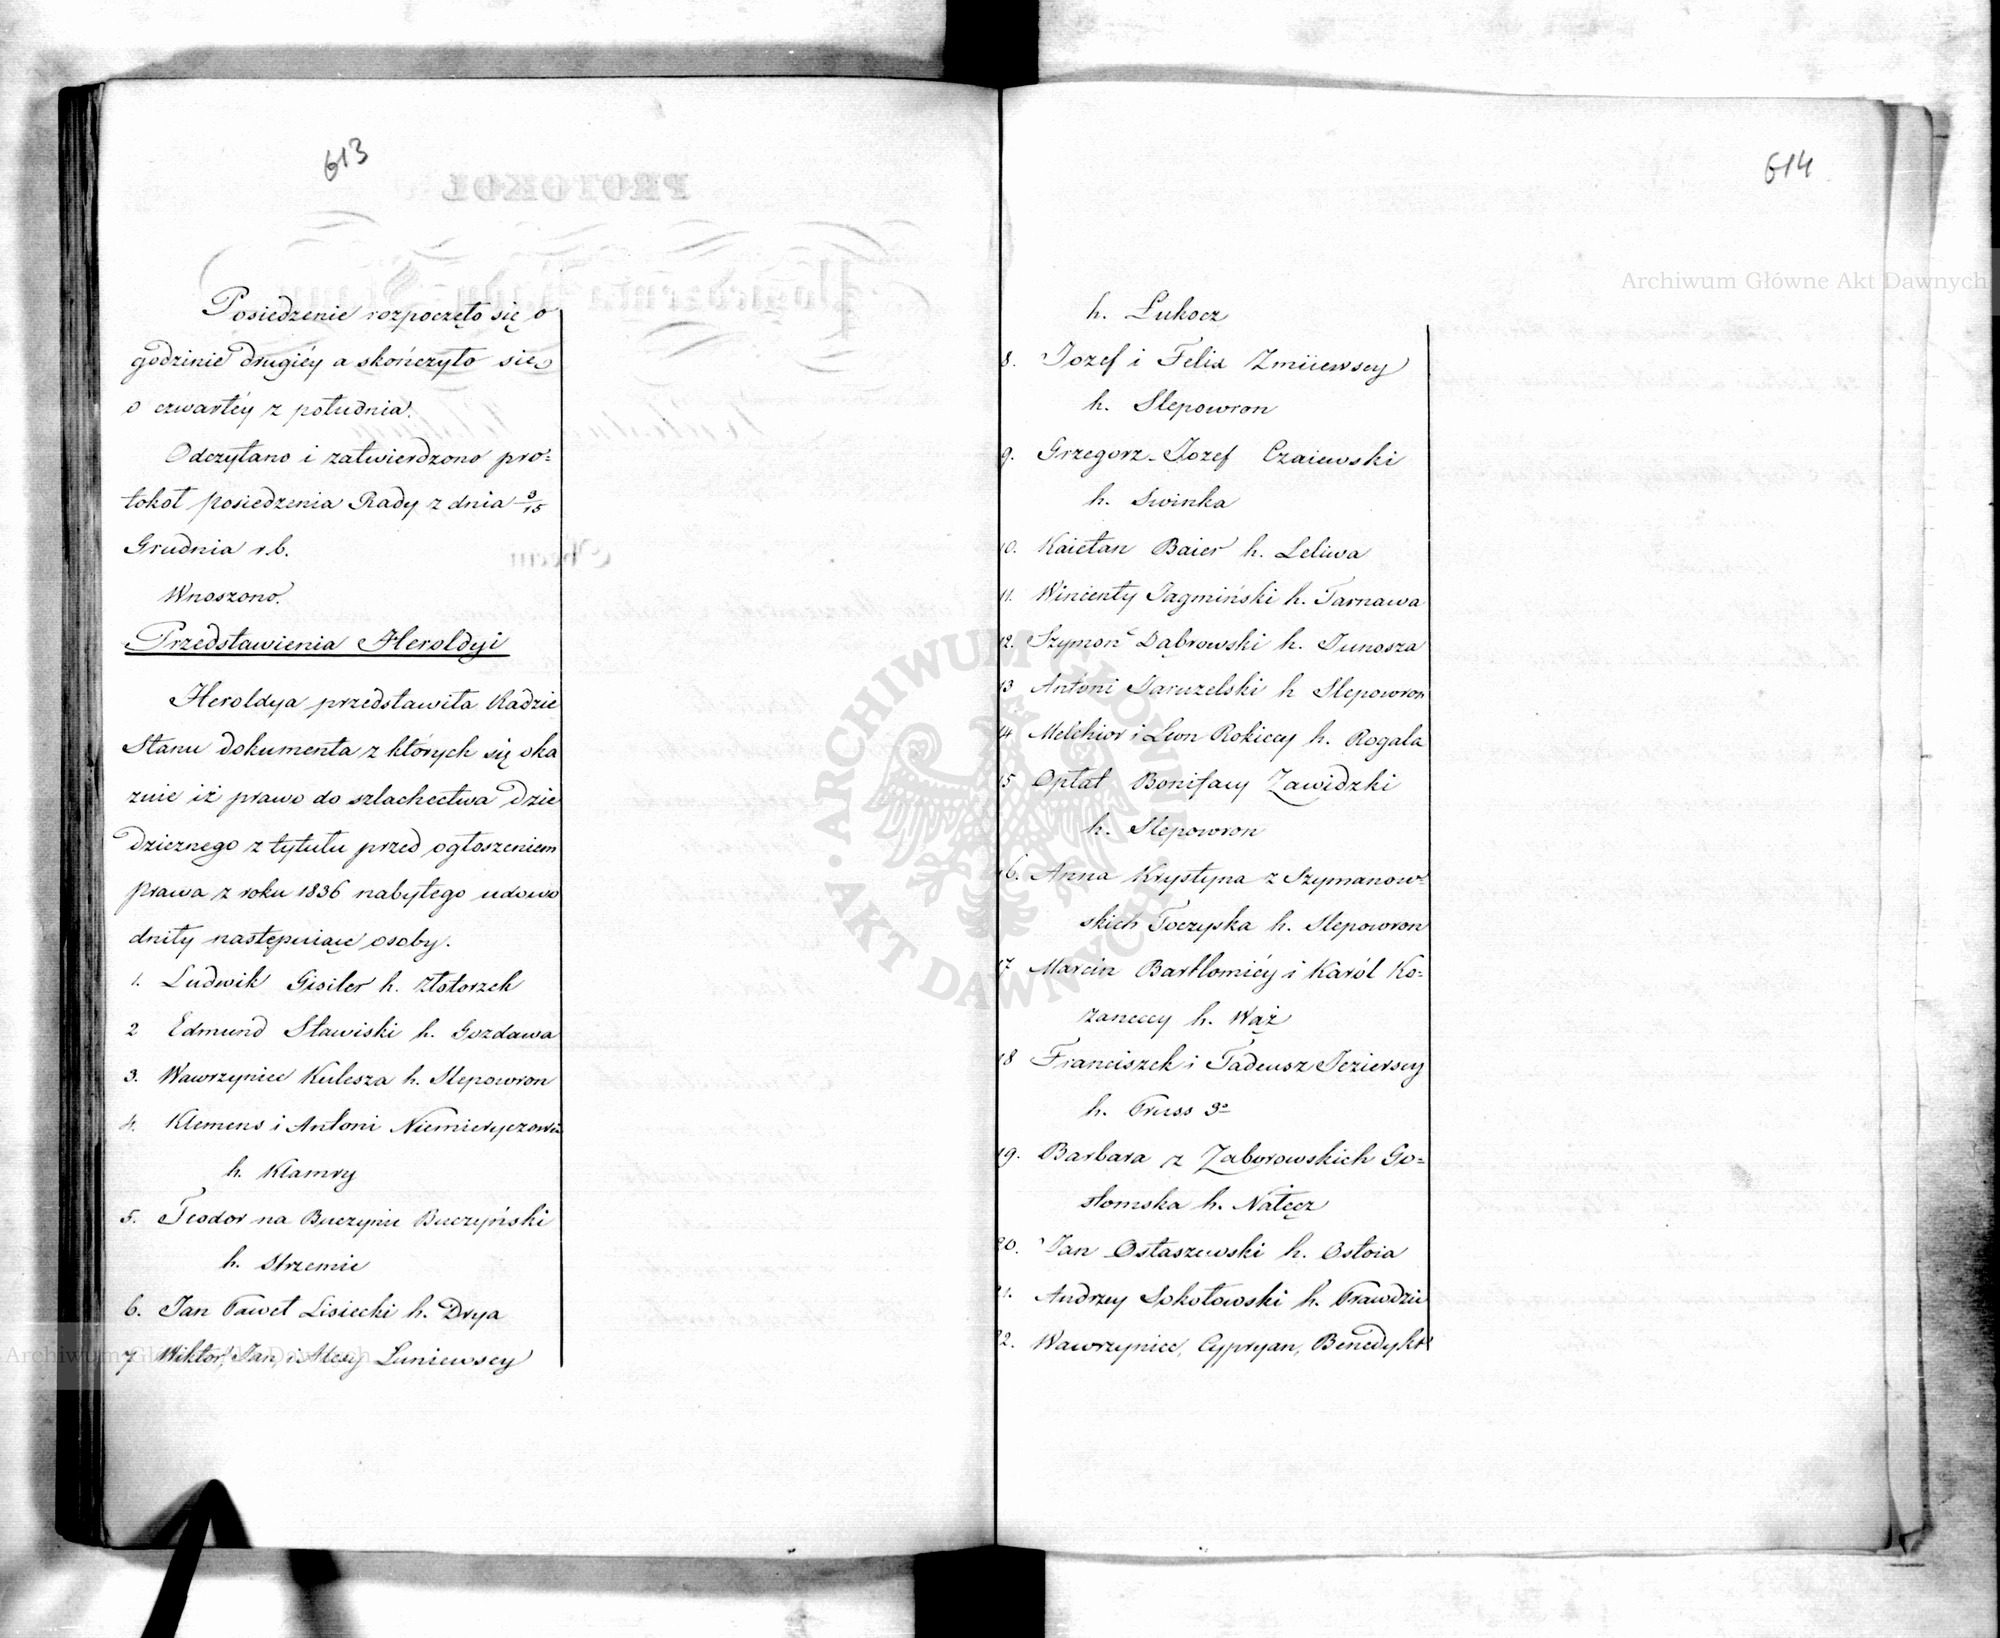 613
Posiedzenie rozpoczęło się o
godzinie drugiéy a skończyło się
o czwartéy z południa.
Odczytano i zatwierdzono pro=
tokół posiedzenia Rady z dnia 3/15
Grudnia r.b.
Wnoszono.
Przedstawienia Heroldyi
Heroldya przedstawiła Radzie
Stanu dokumenta z których się oka
zuie iż prawo do szlachectwa dzie
dzicznego z tytułu przed ogłoszeniem
prawa z roku 1836 nabytego udowo
dniły następuiące osoby.
1. Ludwik Gisiler h. Złotorzek
2 Edmund Sławiski h. Gozdawa
3. Wawrzyniec Kulesza h. Slepowron
4. Klemens i Antoni Niemirycz
h. Klamry
5. Teodor na Buczynie Buczyński
h. Strzemie
6. Jan Paweł Lisiecki h. Drya
7 Wiktor, Jan, i Alexy Łuniewscy
614
h. Lukocz
8. Jozef i Felix Zmiiewscy
h. Slepowron
9. Grzegorz Jozef Czaiewski
h. Swinka
10. Kaietan Baier h. Leliwa
11. Wincenty Jagmiński h. Tarnawa
12. Szymon Dąbrowski h. Junosza
13 Antoni Jaruzelski h Slepowron
14 Melchior i Leon Rokiccy h. Rogala
15 Optat Bonifacy Zawidzki
h. Slepowron
16. Anna Krystyna z Szymanow=
skich Toczyska h. Slepowron
17 Marcin Bartłomiéy i Karól Ko=
zaneccy h. Wąż
18 Franciszek i Tadeusz Jezierscy
h. Pruss 3o
19. Barbara z Zaborowskich Go=
słomska h. Nałęcz
20. Jan Ostaszewski h. Ostoia
21. Andrzey Sokołowski h. Prawdzic
22. Wawrzyniec, Cypryan, Benedykt
Archiwum Główne Akt Dawnych
Archiwum Główne Akt Dawnych
ARCHIWUM GŁÓWNE AKT DAWNYCH